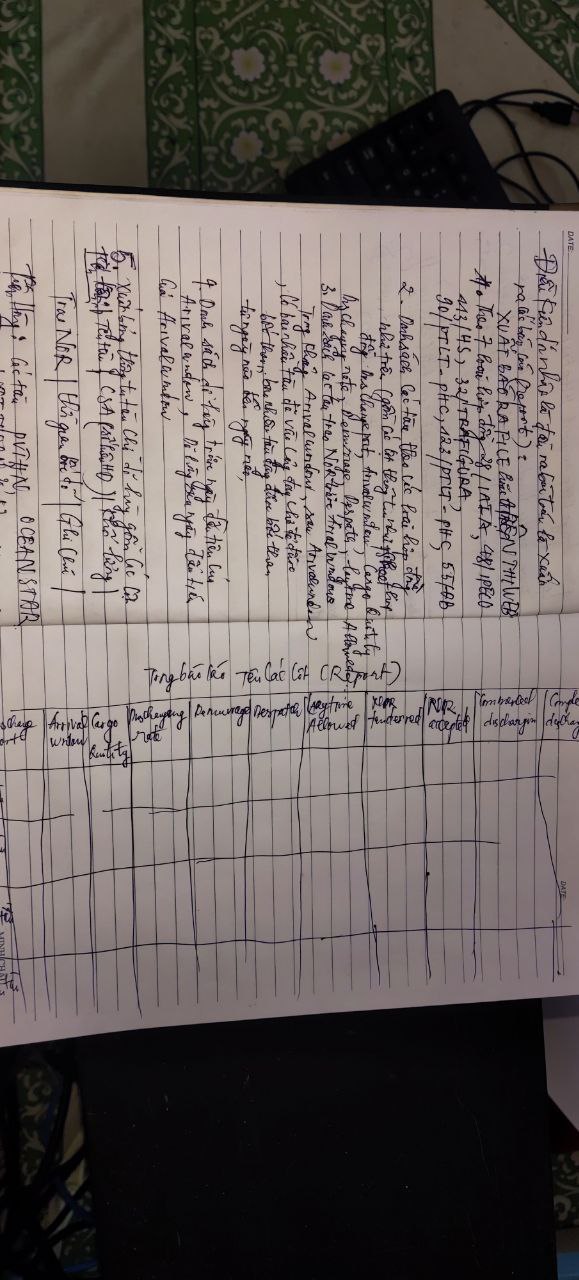 DATE:
Điều kiện đã nhập là đầu ra bài toán là xuất
ra các báo cáo (Report):
XUẤT BÁO RA FILE hoặc TRÊN THI WEB
1. Theo 7 loại hợp đồng 28/IAIA, 48/IPECO
113/45, 32/TRAFIGURA,
90/PTLT-PHC, 123/PTLT-PHC, 55/
2. Danh sách các tàu theo các loại hợp đồng
như trên (gồm các cột thông tin như
đồng Discharge port, Arival window, Cargo Quatity
Discharging rate, Demurrage, Despath, laytime Allowed,
3. Danh sách các tàu trao NOR trước Arial window
Trong khoảng Arival window, sau Arival window
, Có bao nhiêu tàu đã vào cảng đang chờ để được
bốc than, bao nhiêu tàu đang được bốc than
từ ngày nào đến ngày nào,
4. Danh sách dỡ hàng trước ngày đầu tiên của
Arival window, Dỡ hàng sau ngày đầu tiên
Của Arival window
5. Xuất bảng thông tin tàu chờ dỡ hàng gồm các cột
Tên tàu | CSA (số hiệu HĐ) | Khối lượng |
Trao NOR | thời gian dỡ | Ghi Chú |
Tiến Hùng: Các tàu PVTHN, OCEAN STAR
DATE:
Trong báo cáo Tên Các Cột (Report)
Arrival window
Cargo Quatity
Discharging rate
Demurrage
Despatch
Laytime Allowed
NOR Tendered
NOR accepted
discharging
MINH CHÂU